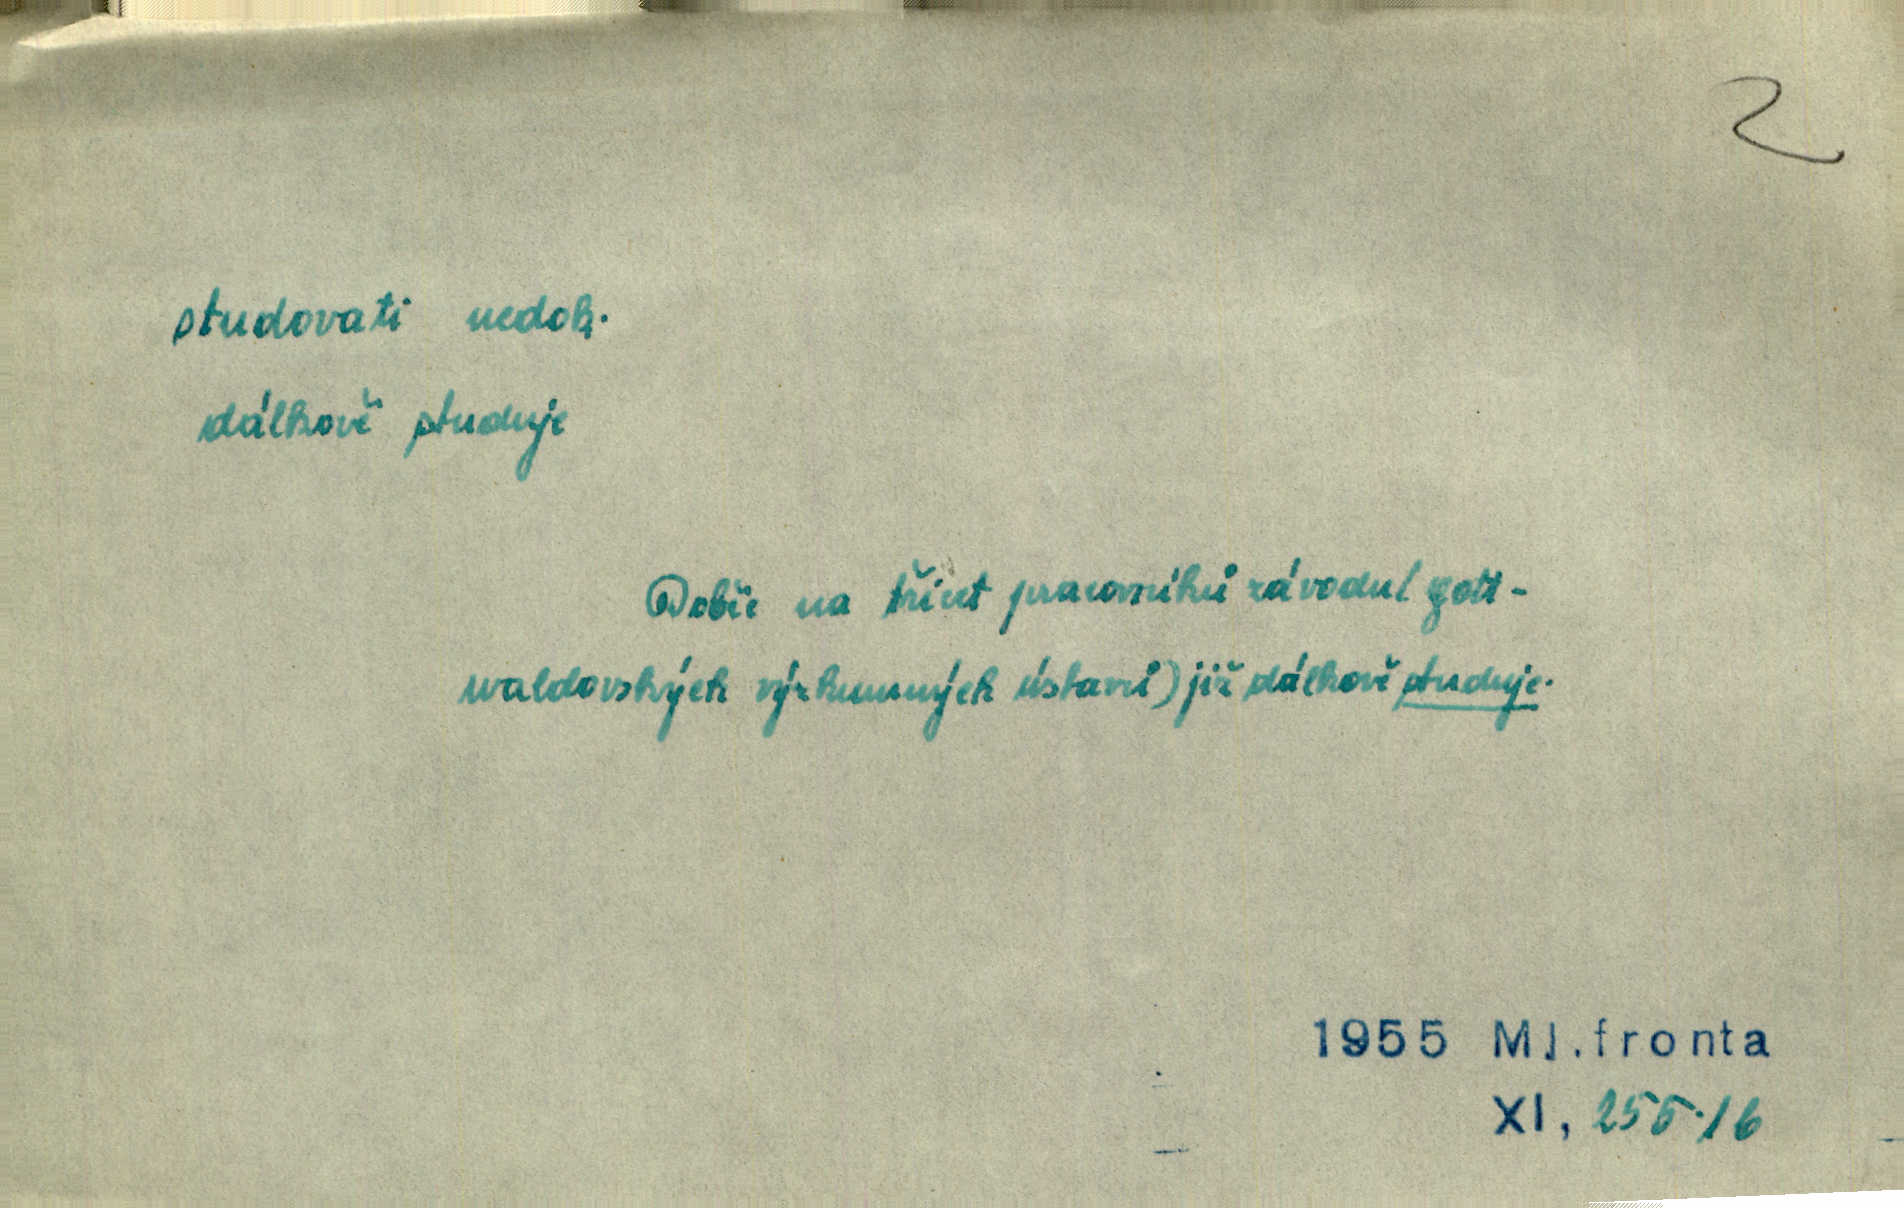 2
studovati nedok.
dálkově studuje
Dobře na třicet pracovníků závodu (gott-
waldovských výzkumných ústavů) již dálkově studuje.
1955 Ml.fronta
XI, 255.16